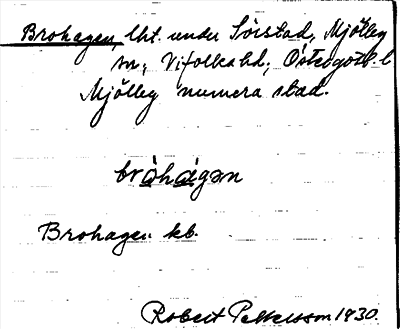 Brohagen, lht. under Sörstad, Mjölby
sn; Vifolka hd; Östergötl. l
Mjölby numera stad.
bròhàgən
Brohagen kb.
Robert Pettersson 1930.